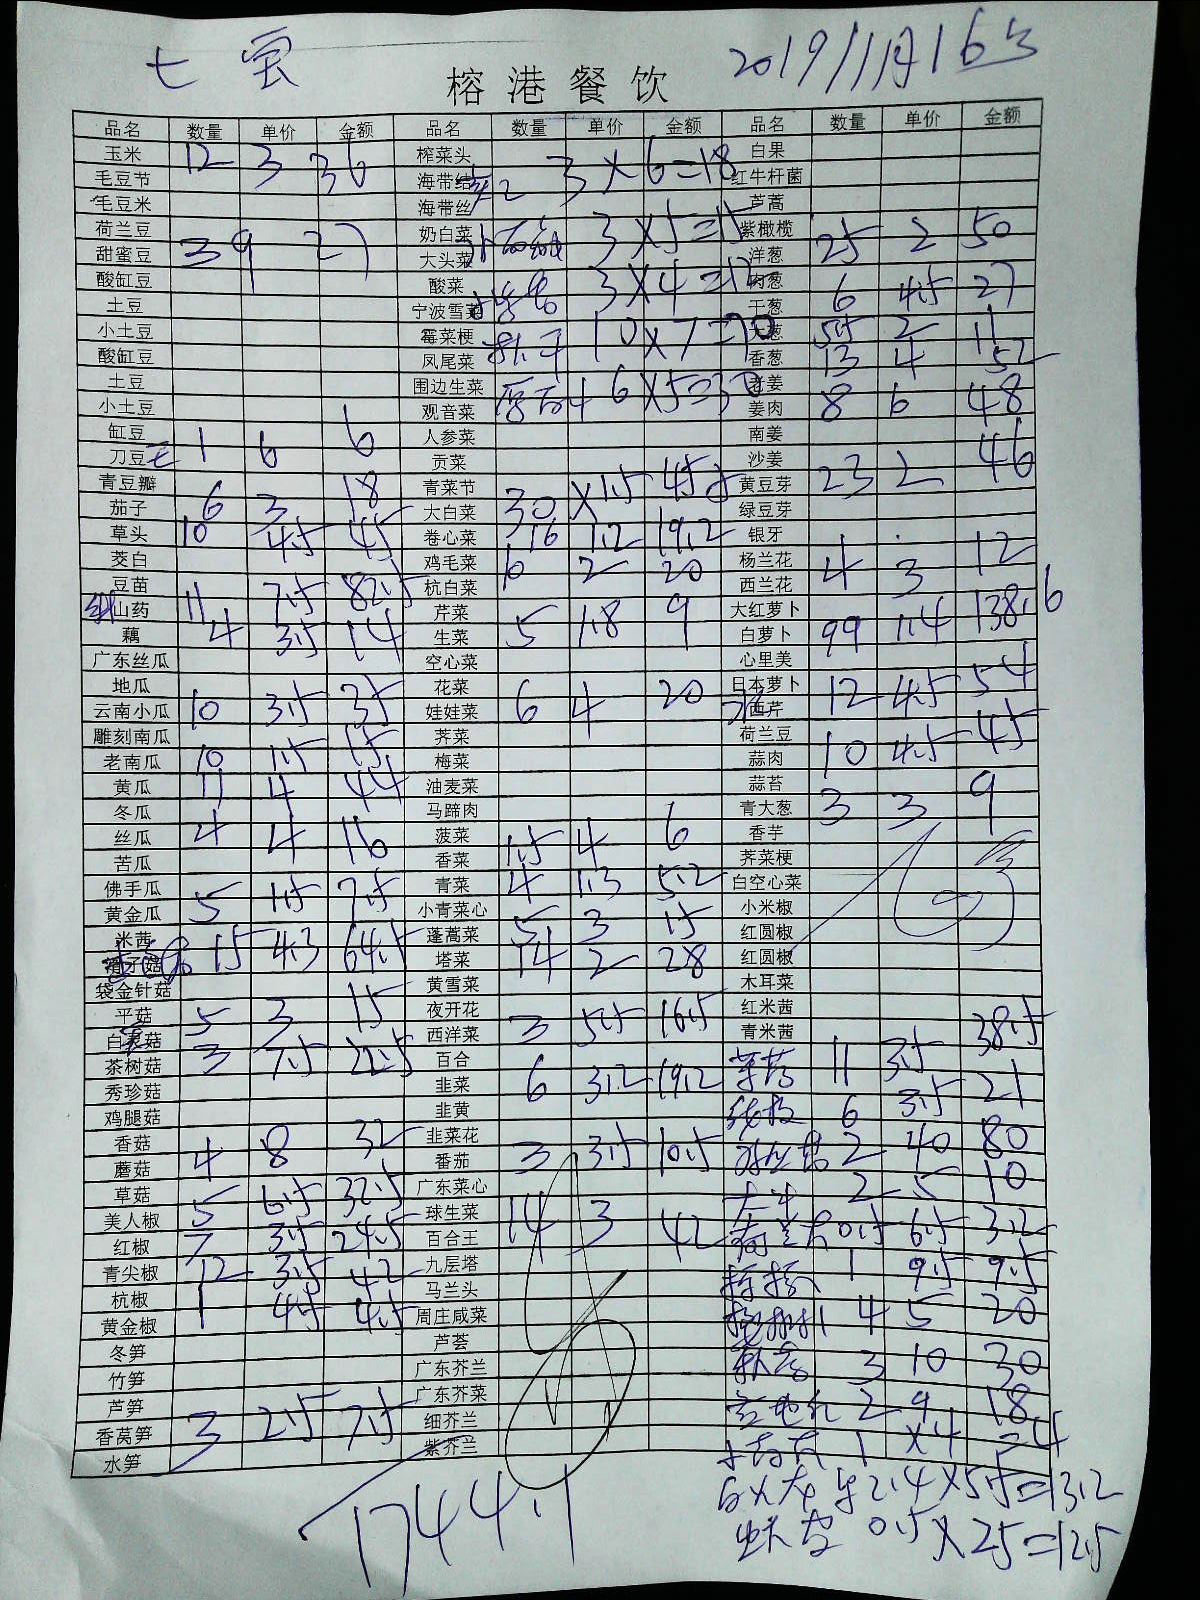 七宝 2019/11月16号
榕港餐饮
品名 数量 单价 金额 品名 数量 单价 金额 品名 数量 单价 金额
玉米 12 3 36 榨菜头 白果
毛豆节 海带结 2 3×6=18 红牛杆菌
毛豆米 海带丝 芦蒿
荷兰豆 奶白菜 3×5=15 紫橄榄 25 2 50
甜蜜豆 3 9 27 大头菜 洋葱
酸缸豆 酸菜 3×4=12 肉葱 6 4.5 27
土豆 宁波雪菜 干葱
小土豆 霉菜梗 10×7=70 大葱 5.5 2 11
酸缸豆 凤尾菜 香葱 13 4 52
土豆 围边生菜 6×5=30 老姜
小土豆 观音菜 姜肉 8 6 48
缸豆 1 6 6 人参菜 南姜
刀豆 贡菜 沙姜 23 2 46
青豆瓣 青菜节 黄豆芽
茄子 6 3 18 大白菜 30 ×1.5 45 绿豆芽
草头 10 4.5 45 卷心菜 16 1.2 19.2 银牙
茭白 鸡毛菜 10 2 20 杨兰花 4 3 12
豆苗 杭白菜 西兰花
山药 11 7.5 82.5 芹菜 5 1.8 9 大红萝卜
藕 4 3.5 14 生菜 白萝卜 99 1.4 138.6
广东丝瓜 空心菜 心里美
地瓜 花菜 日本萝卜 12 4.5 54
云南小瓜 10 3.5 35 娃娃菜 6 4 20 西芹
雕刻南瓜 荠菜 荷兰豆
老南瓜 10 1.5 15 梅菜 蒜肉 10 4.5 45
黄瓜 11 4 44 油麦菜 蒜苔
冬瓜 马蹄肉 青大葱 3 3 9
丝瓜 4 4 16 菠菜 1.5 4 6 香芋
苦瓜 香菜 荠菜梗
佛手瓜 青菜 4 1.3 5.2 白空心菜
黄金瓜 5 1.5 7.5 小青菜心 小米椒
米茜 蓬蒿菜 5 3 15 红圆椒
滑子菇 15 4.3 64.5 塔菜 14 2 28 红圆椒
袋金针菇 黄雪菜 木耳菜
平菇 5 3 15 夜开花 红米茜
白灵菇 西洋菜 3 5.5 16.5 青米茜
茶树菇 3 7.5 22.5 百合 11 3.5 38.5
秀珍菇 韭菜 6 3.2 19.2
鸡腿菇 韭黄 6 3.5 21
香菇 4 8 32 韭菜花 2 40 80
蘑菇 番茄 3 3.5 10.5
草菇 5 6.5 32.5 广东菜心 2 5 10
美人椒 球生菜 14 3 42
红椒 7 3.5 24.5 百合王 荷兰豆 0.5 6.5 3.2
青尖椒 12 3.5 42 九层塔 1 9.5 9.5
杭椒 1 4.5 4.5 马兰头
黄金椒 周庄咸菜 4 5 20
冬笋 芦荟
竹笋 广东芥兰 3 10 30
芦笋 广东芥菜 2 9 18
香莴笋 3 2.5 7.5 细芥兰
水笋 紫芥兰 1 ×4 =4
2.4×5.5=13.2
1744.1 0.5×25=12.5